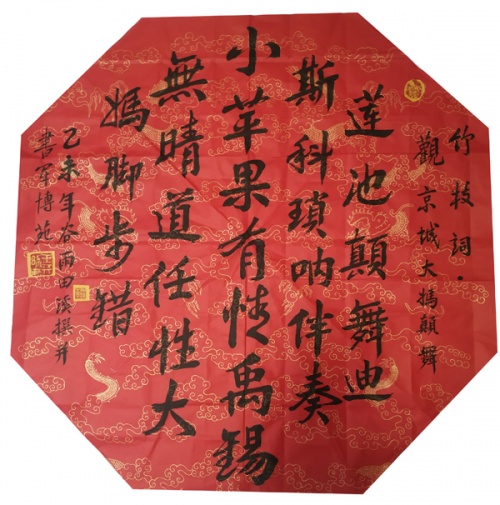 竹枝詞·
觀京城大媽顛舞
蓮池顛舞迪
斯科瑣呐伴奏
小苹果有情禹錫
無晴道任性大
媽脚步錯
乙未年谷雨田溪撰并
書军博苑